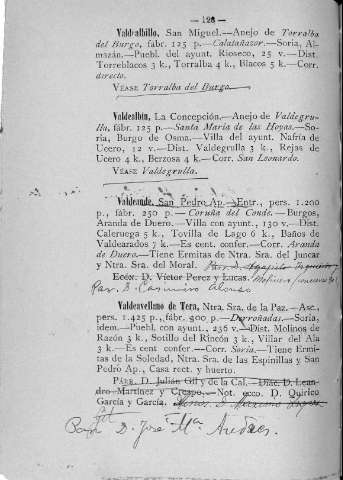 — 128 —
Valdealbillo, San Miguel.—Anejo de Torralba
del Burgo, fábr. 125 p.—Calatañazor.—Soria, Al-
mazán.—Puebl. del ayunt. Rioseco, 25 v.—Dist.
Torreblacos 3 k., Torralba 4 k., Blacos 5 k.—Corr.
directo.
VÉASE Torralba del Burgo
Valdealbín, La Concepción.—Anejo de Valdegru-
lla, fábr. 125 p.—Santa María de las Hoyas.—So-
ria, Burgo de Osma.—Villa del ayunt. Nafría de
Ucero, 12 v.—Dist. Valdegrulla 3 k., Rejas de
Ucero 4 k., Berzosa 4 k.—Corr. San Leonardo.
VÉASE Valdegrulla.
Valdeande, San Pedro Ap.—Entr., pers. 1.200
p., fábr. 250 p.—Coruña del Conde.—Burgos,
Aranda de Duero.—Villa con ayunt., 130 v.—Dist.
Caleruega 5 k., Tovilla de Lago 6 k., Baños de
Valdearados 7 k.—Es cent. confer.—Corr. Aranda
de Duero.—Tiene Ermitas de Ntra. Sra. del Juncar
y Ntra. Sra. del Moral.
Ecón. D. Víctor Perez y Lucas.
Par. D. Casimiro Alonso
Valdeavellano de Tera, Ntra. Sra. de la Paz.—Asc.,
pers. 1.425 p., fábr. 900 p.—Derroñadas.—Soria,
idem.—Puebl. con ayunt., 236 v.—Dist. Molinos de
Razón 3 k., Sotillo del Rincón 3 k., Villar del Ala
3 k.—Es cent. confer.—Corr. Soria.—Tiene Ermi-
tas de la Soledad, Ntra. Sra. de las Espinillas y San
Pedro Ap., Casa rect. y huerto.
PÁRR. D. Julián Gil y de la Cal.—Diác. D. Lean-
dro Martínez y Crespo.—Not. ecco. D. Quirico
García y García.
D. José Mª